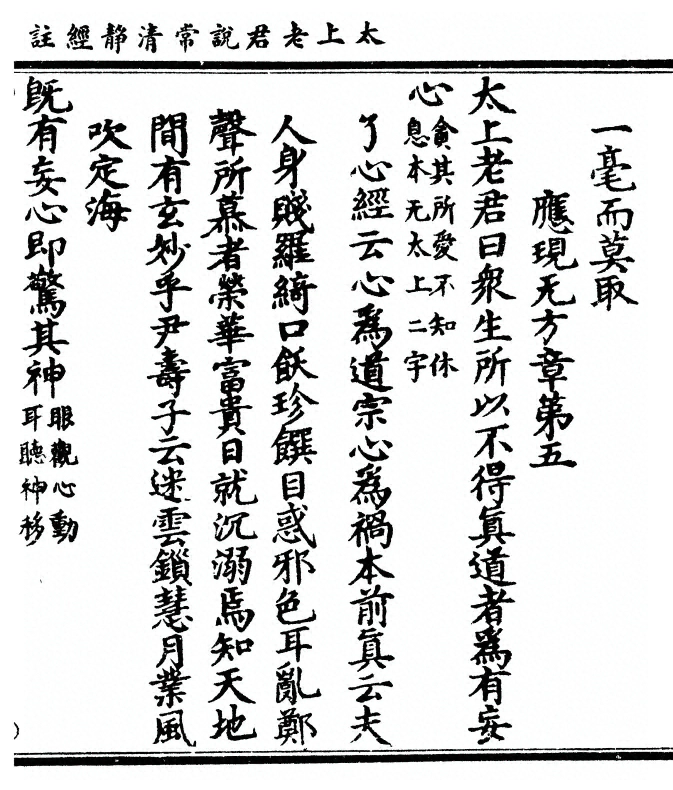 太上老君說常清靜經註
一毫而莫取
應現无方章第五
太上老君曰衆生所以不得眞道者爲有妄
心貪其所愛不知休
息本无太上二字
了心經云心爲道宗心爲禍本前眞云夫
人身賤羅綺口飫珍饌目惑邪色耳亂鄭
聲所慕者榮華富貴日就沉溺焉知天地
間有玄妙乎尹壽子云迷雲鎖慧月業風
吹定海
旣有妄心即驚其神眼觀心動
耳聽神移